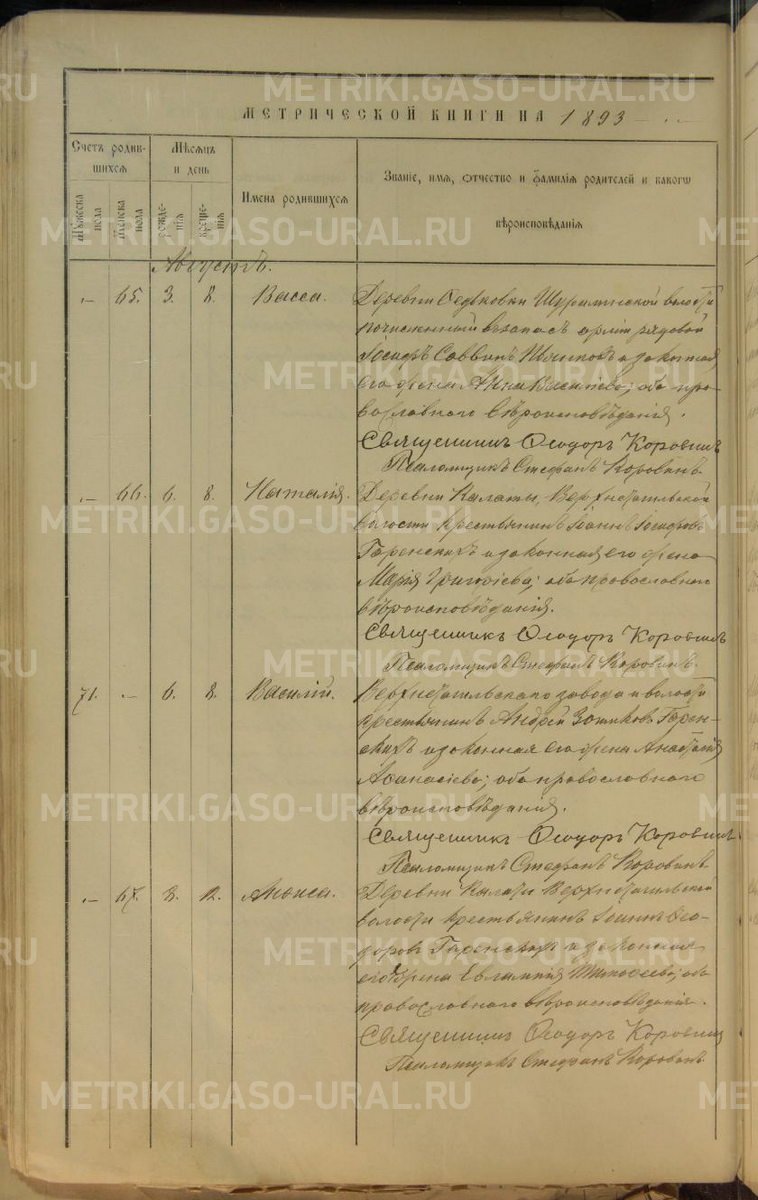 МЕТРИЧЕСКОЙ КНИГИ НА 1893
Счетъ родив-
шихся
Мѣсяцъ
и день
Имена родившихся
Званіе, имя, отчество и фамилія родителей и какого
вѣроисповѣданія
Мужеска пола
Женска пола
рожде-нія
креще-нія
Августъ.
„– 65. 3. 8. Васса. Деревни Ѳедьковки Шуралинской волости
зачисленный въ запасъ арміи рядовой
Іосифъ Саввинъ и законная
его жена Анна Васильева; оба пра-
вославнаго вѣроисповѣданія.
Священникъ Ѳеодоръ Коровинъ
Псаломщикъ Стефанъ Коровинъ.
„– 66. 6. 8. Наталія. Деревни Калаты, Верхнетагильской
волости крестьянинъ Іоаннъ Іосифовъ
Гаренскихъ и законная его жена
Марія Григоріева; оба православнаго
вѣроисповѣданія.
Священникъ Ѳеодоръ Коровинъ
Псаломщикъ Стефанъ Коровинъ.
71. „– 6. 8. Василій. Верхнетагильскаго завода и волости
крестьянинъ Андрей Гарен-
скихъ и законная его жена Анастасія
Аѳанасіева; оба православнаго
вѣроисповѣданія.
Священникъ Ѳеодоръ Коровинъ
Псаломщикъ Стефанъ Коровинъ
„– 67. 8. 12. Анѳиса. Деревни Калаты Верхнетагильской
волости крестьянинъ Іоаннъ Ѳео-
доровъ Гаренскихъ и законная
его жена Евлампія Тимоѳеева; оба
православнаго вѣроисповѣданія.
Священникъ Ѳеодоръ Коровинъ
Псаломщикъ Стефанъ Коровинъ
METRIKI.GASO-URAL.RU